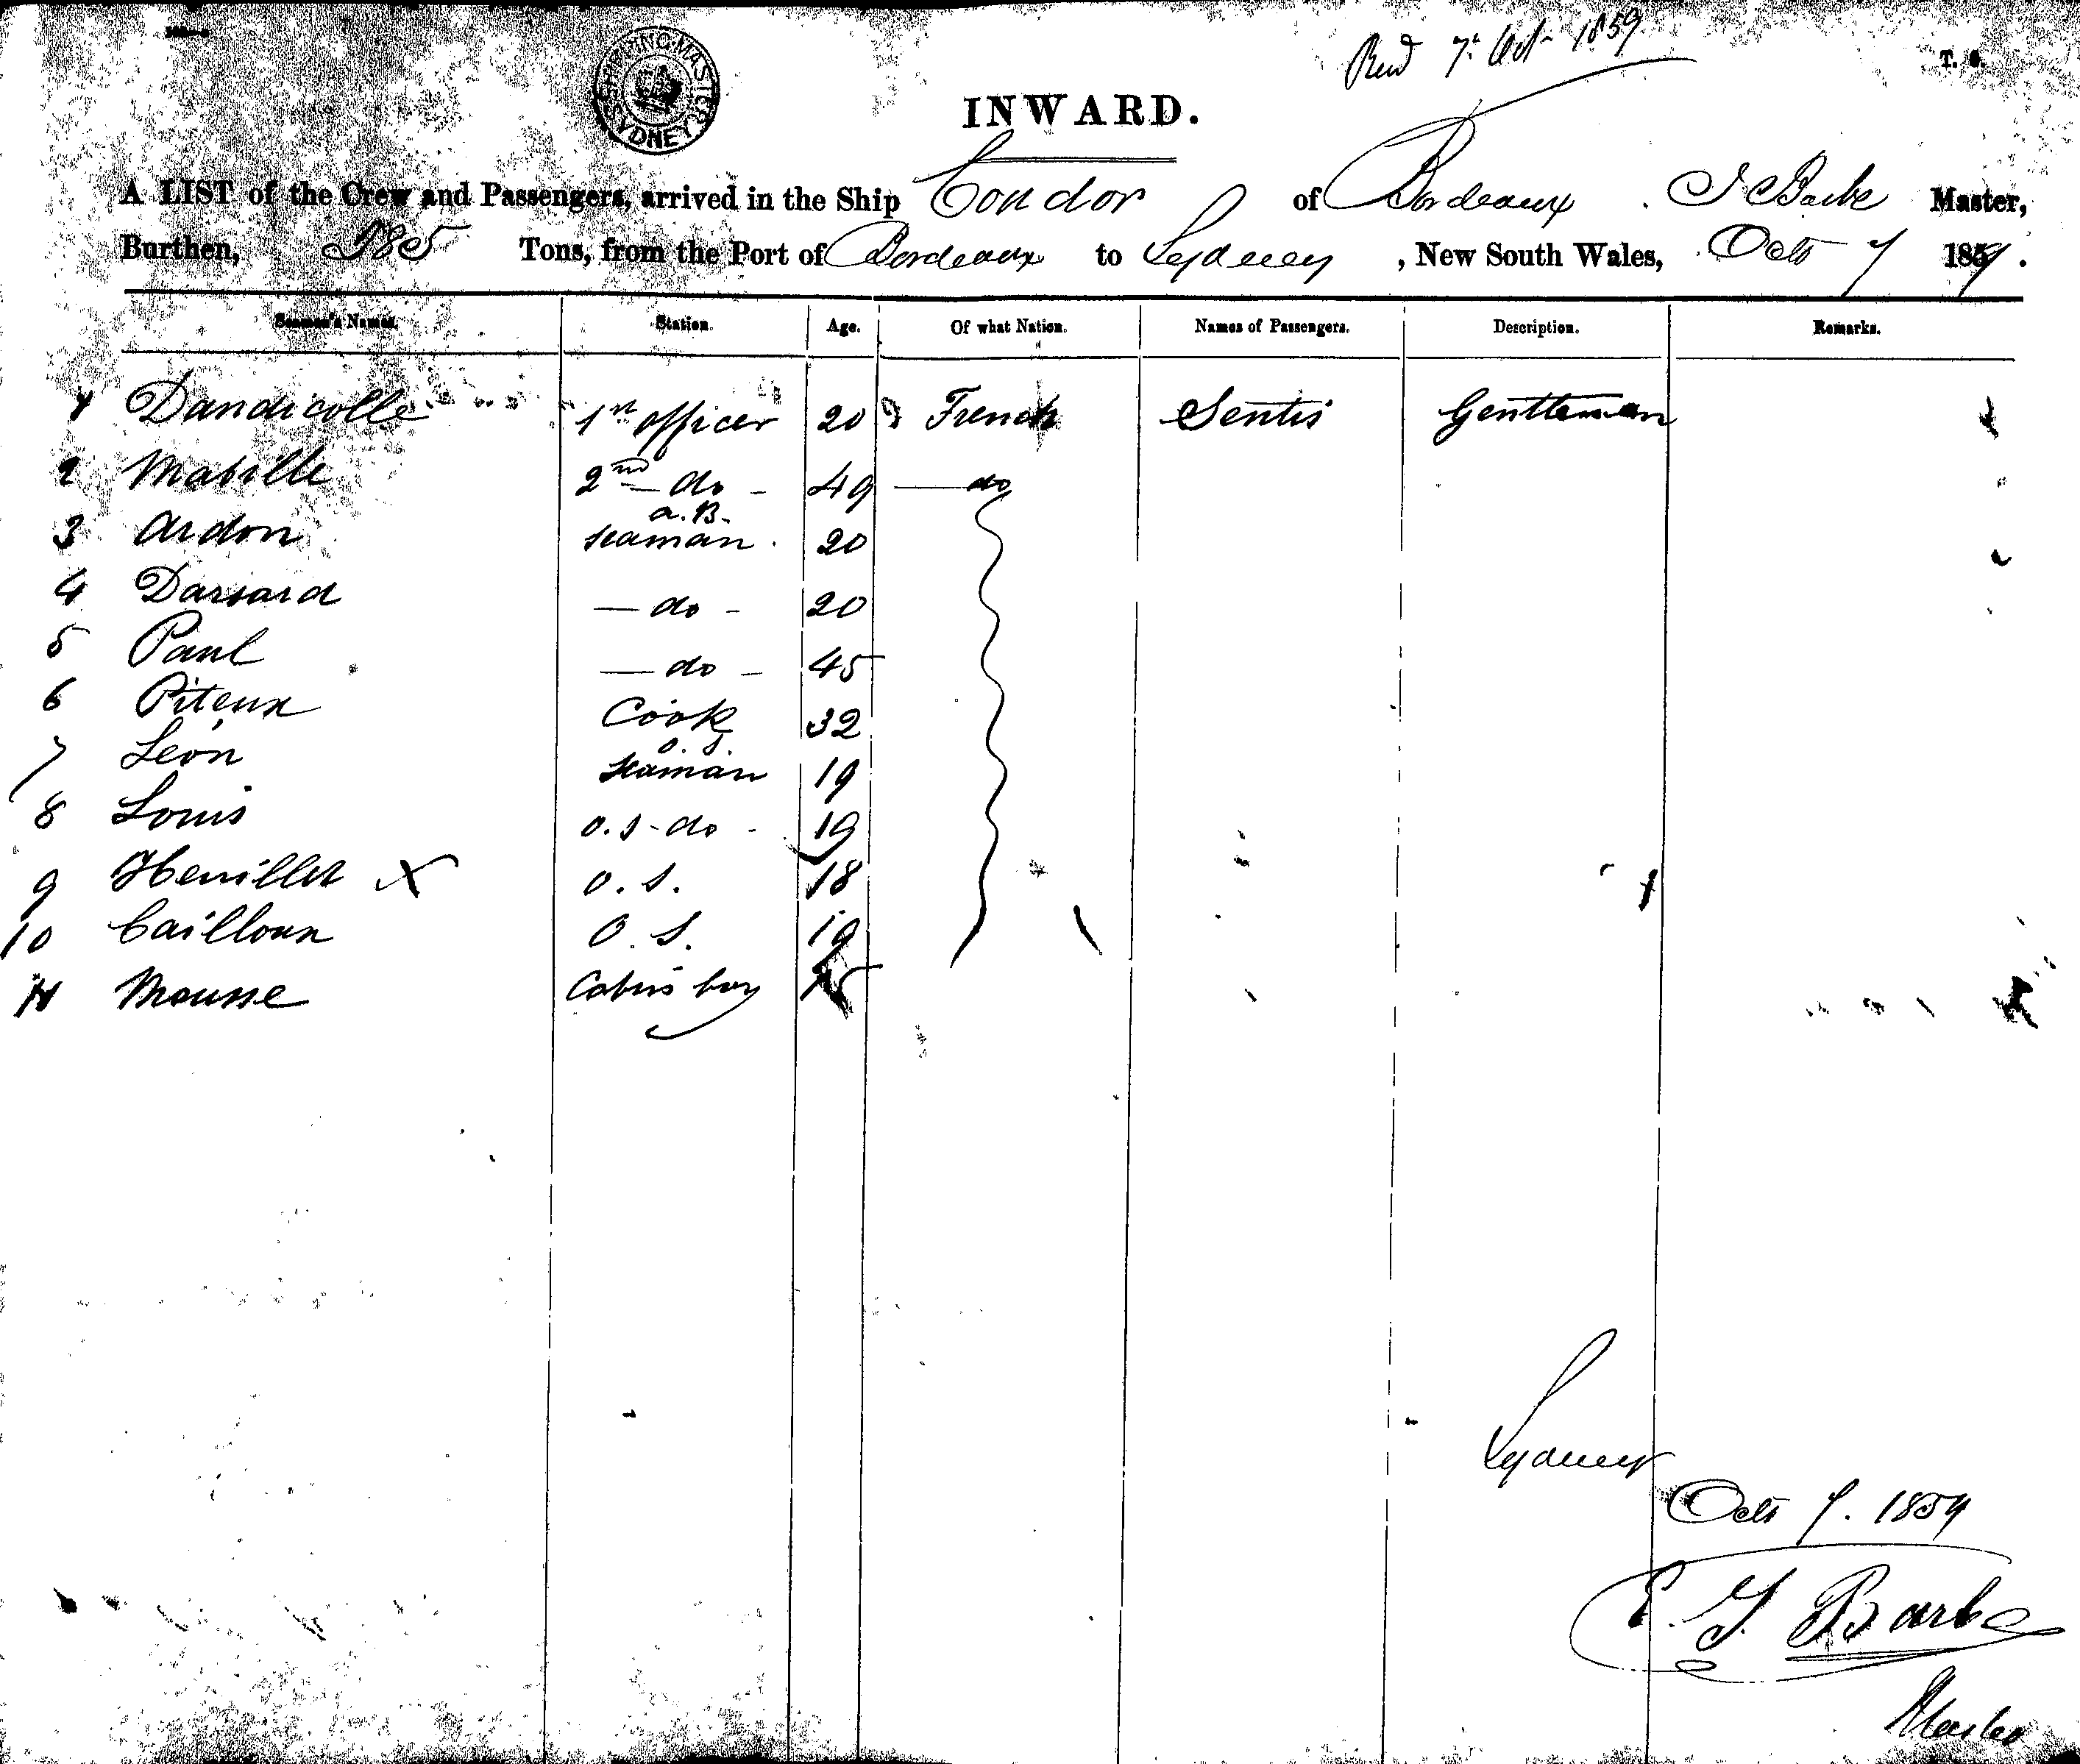 Recd 7th Oct 1859
SHIPPING MASTER SYDNEY
INWARD.
A LIST of the Crew and Passengers, arrived in the Ship Condor of Bordeaux. J Barbe Master,
Burthen, 385 Tons, from the Port of Bordeaux to Sydney, New South Wales, Octo 7 1859.
Seamen's Names. Station. Age. Of what Nation. Names of Passengers. Description. Remarks.
1 Dandicolle 1st officer 20 French Sentis Gentleman
2 Mabille 2nd — do — 49 — do
3 Ardon a.B. seaman. 20
4 Darsard — do — 20
5 Paul — do — 45
6 Piteux Cook 32
7 Leon o.s. seaman 19
8 Louis o.s - do - 19
9 X o.s. 18
10 Cailloux O.S. 19
11 Mousse Cabin boy 15
Sydney
Octo 7. 1859
E. J. Barbe
Master